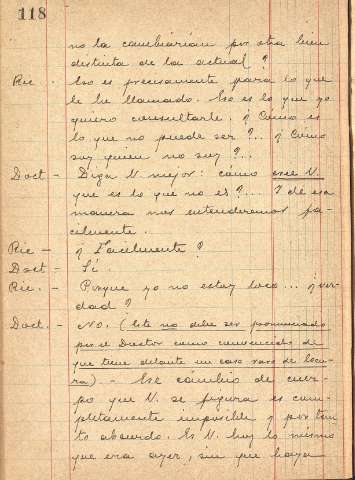 118
no la cambiarían por otra bien
distinta de la actual?
Ric. - Eso es precisamente para lo que
le he llamado. Eso es lo que yo
quiero consultarle. ¿Cómo es
lo que no puede ser?... ¿Cómo
soy quien no soy?...
Doct - Diga V. mejor: cómo cree V.
que es lo que no es?... Y de esa
manera nos entenderemos fa-
cilmente.
Ric - ¿Facilmente?
Doct - Sí.
Ric. - Porque yo no estoy loco... ¿ver-
dad?
Doct. - No. (Este no debe ser pronunciado
por el Doctor como convencido de
que tiene delante un caso raro de locu-
ra) - Ese cambio de cuer-
po que V. se figura es com-
pletamente imposible y por tan-
to absurdo. Es V. hoy lo mismo
que era ayer, sin que haya